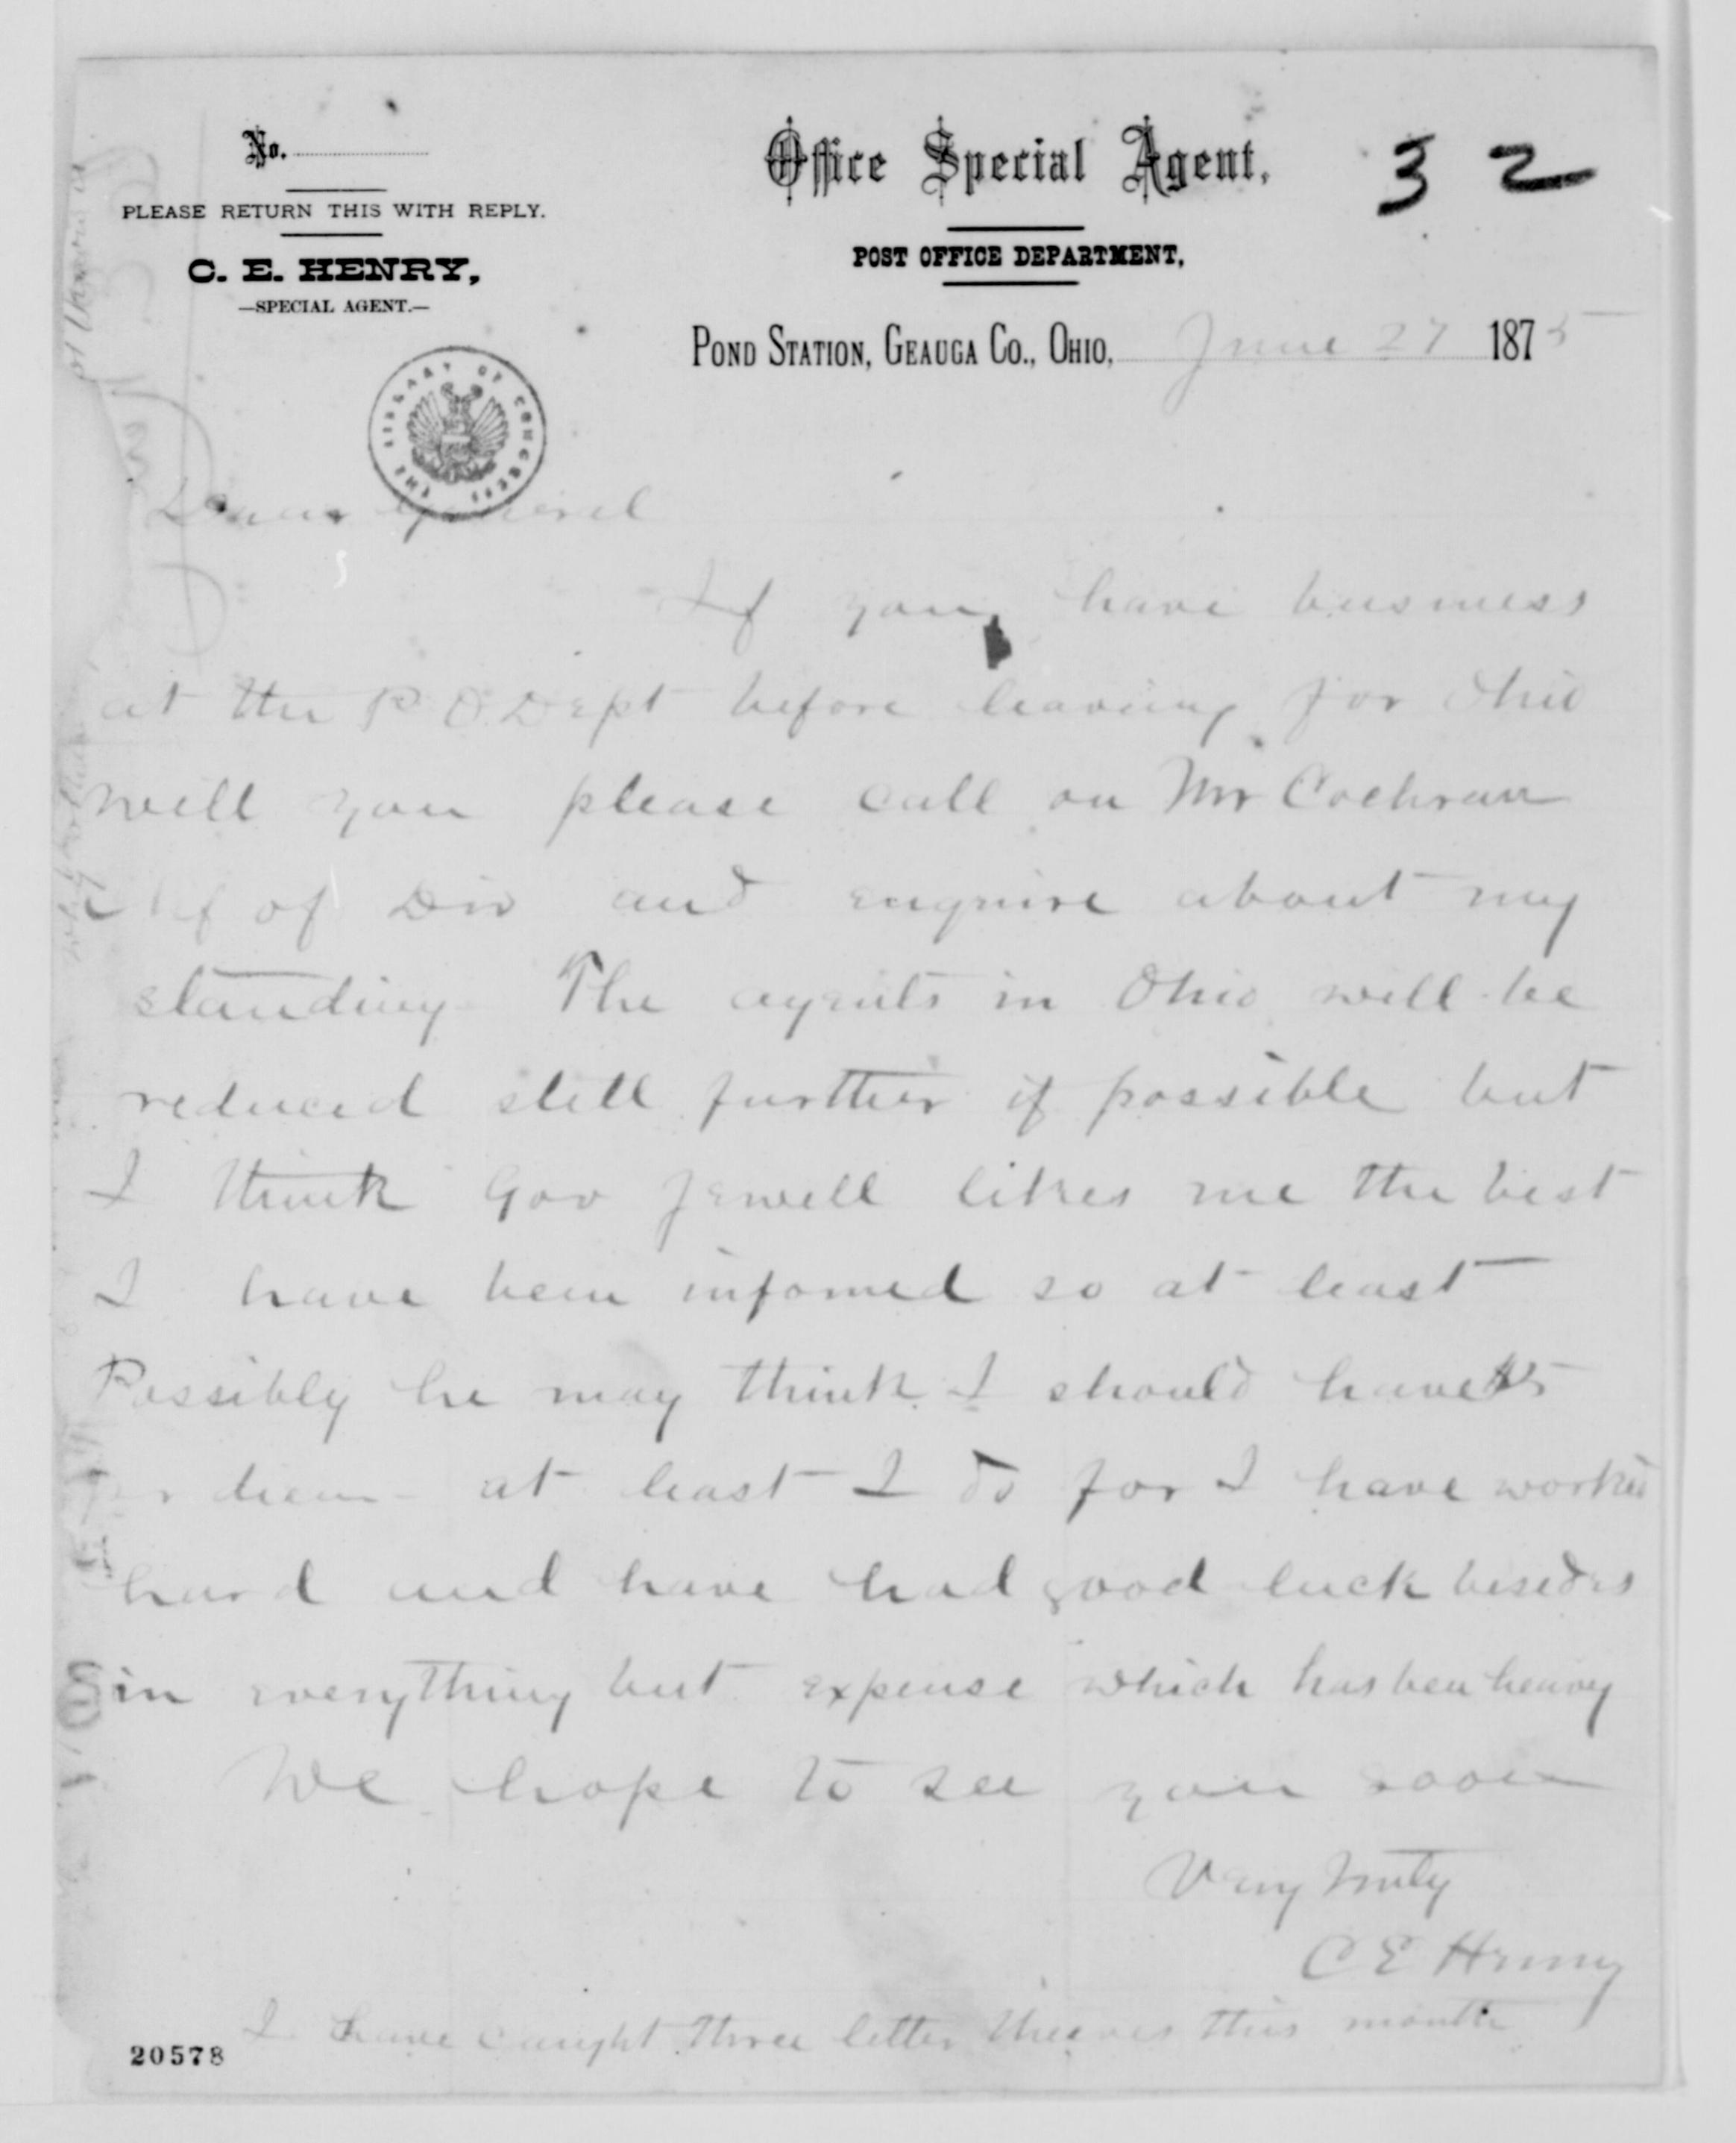 No.
PLEASE RETURN THIS WITH REPLY.
C. E. HENRY,
—SPECIAL AGENT.—
Office Special Agent,
POST OFFICE DEPARTMENT,
32
POND STATION, GEAUGA CO., OHIO, June 27 1875
THE LIBRARY OF CONGRESS
Dear General
If you have business
at the P.O. Dept before leaving for Ohio
will you please call on Mr Cochran
of Div and enquire about my
standing The agents in Ohio will be
reduced still further if possible but
I think Gov Jewell likes me the best
I have been infomed so at least
Possibly he may think I should have $5
diem - at least I do for I have worked
hard and have had good luck besides
in everything but expense which has been heavy
We hope to see you soon
Very truly
C E Henry
I have caught three letter thieves this month
20578